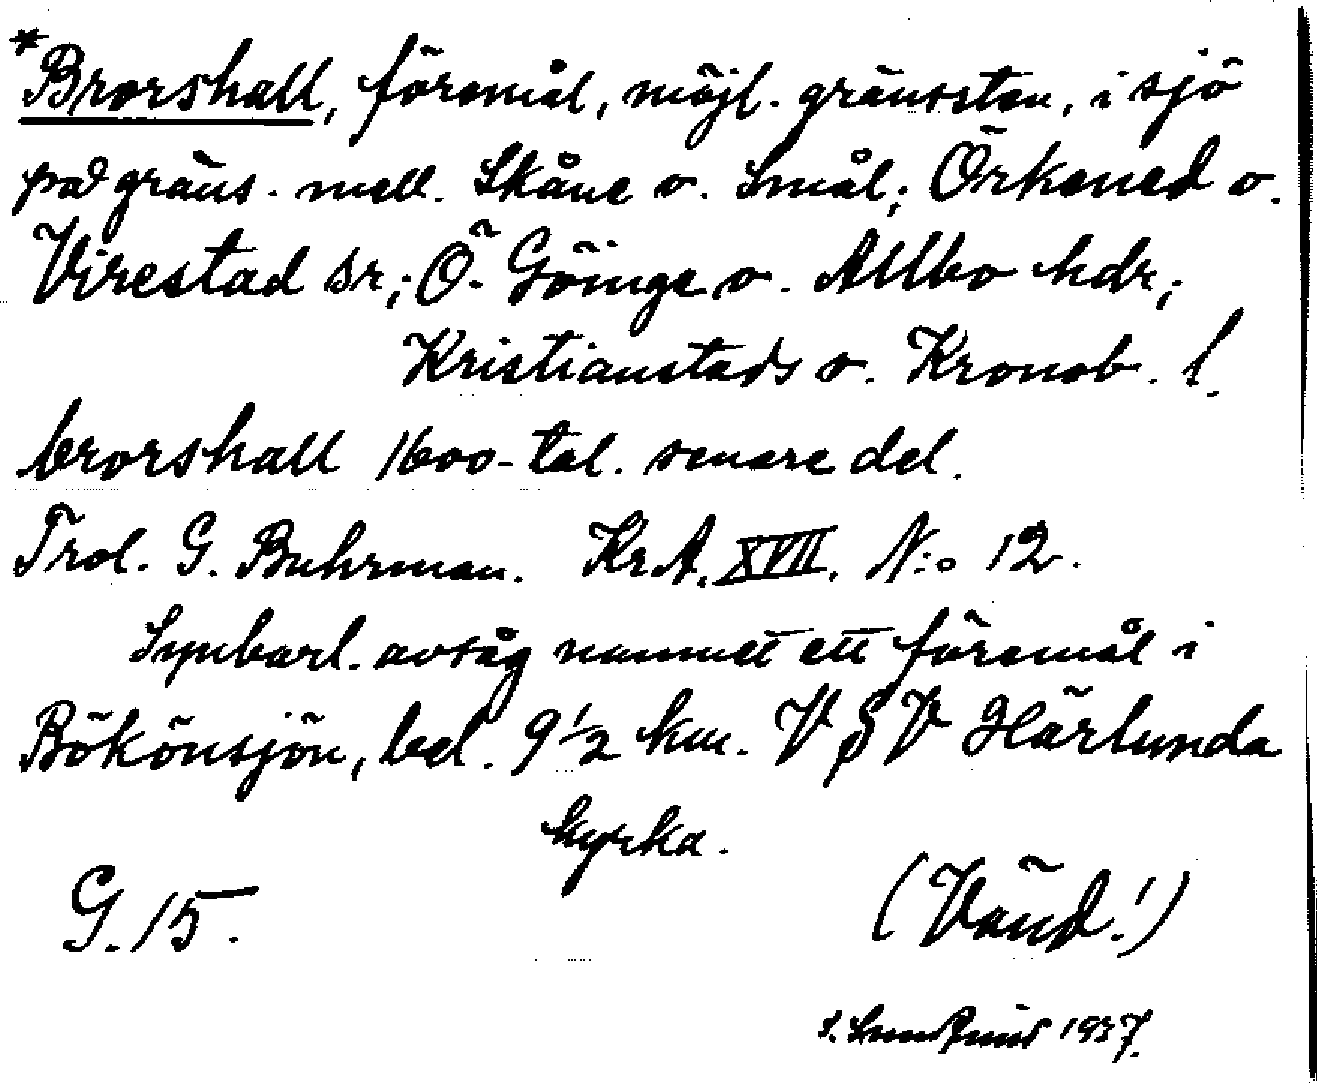 *Brorshall, föremål, möjl. gränssten, i sjö
på gräns. mell. Skåne o. Smål; Örkened o.
Virestad sr; Ö. Göinge o. Allbo hdr;
Kristianstads o. Kronob. l.
brorshall 1600-tal. senare del.
Trol. G. Buhrman. Kr.A. XVII. N:o 12.
Synbarl. avsåg namnet ett föremål i
Bökönsjön, bel. 9 1/2 km. V g V Härlunda
kyrka.
G. 15.
(Vänd!)
1937.